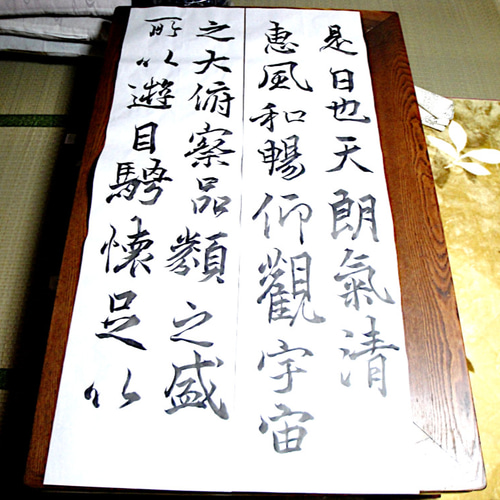 是日也天朗氣清
惠風和暢仰觀宇宙
之大俯察品類之盛
所以遊目騁懷足以